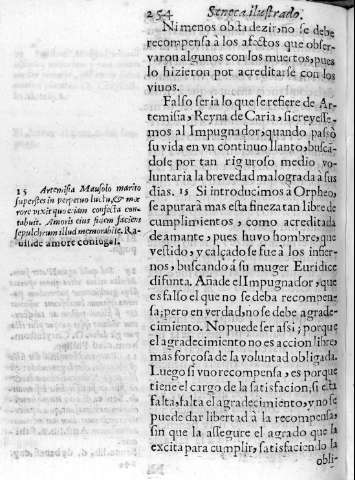 254 Seneca ilustrado.
Ni menos obsta dezir, no se debe
recompensa à los afectos que obser-
varon algunos con los muertos, pues
lo hizieron por acreditarse con los
viuos.
Falso seria lo que se refiere de Ar-
temisia, Reyna de Caria, si creyesse-
mos al Impugnador, quando passò
su vida en vn continuo llanto, buscã-
dose por tan riguroso medio vo-
luntaria la brevedad malograda à sus
dias. 15 Si introducimos a Orpheo,
se apurarà mas esta fineza tan libre de
cumplimientos, como acreditada
de amante, pues huvo hombre, que
vestido, y calçado se fue à los infier-
nos, buscando à su muger Euridice
difunta. Añade el Impugnador, que
es falso el que no se deba recompen-
sa; pero en verdad, no se debe agrade-
cimiento. No puede ser assi; porque
el agradecimiento no es accion libre,
mas forçosa de la voluntad obligada.
Luego si vno recompensa, es porque
tiene el cargo de la satisfacion, si esta
falta, falta el agradecimiento, y no se
puede dar libertad à la recompensa,
sin que la assegure el agrado que la
excita para cumplir, satisfaciendo la
obli-
15 Artemisia Mausolo marito
superstes in perpetuo luctu, & mœ
rore vixit quo etiam confecta con-
tabuit. Amoris eius fidem faciens
sepulchrum illud memorabile. Ra-
uis. de amore coniugal.